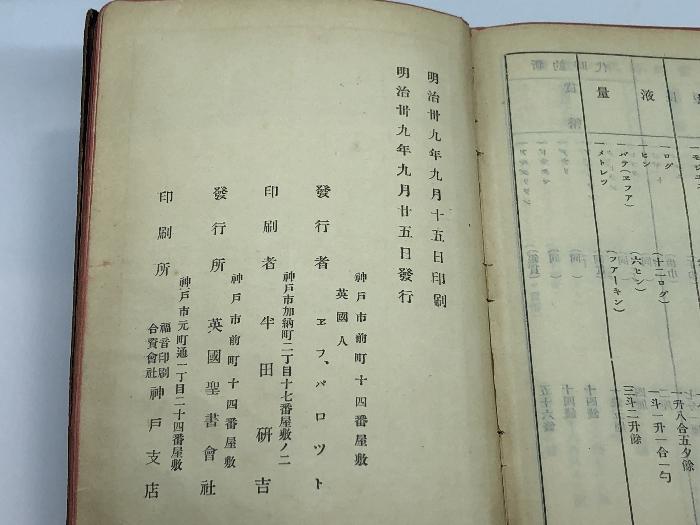 明治卅九年九月十五日印刷
明治卅九年九月廿五日發行
神戸市前町十四番屋敷
英國人
發行者 ヱフ、パロット
神戸市加納町二丁目十七番屋敷ノ二
印刷者 半田研吉
神戸市前町十四番屋敷
發行所 英國聖書會社
神戸市元町通一丁目二十四番屋敷
印刷所 福音印刷合資會社 神戸支店
液
量
一ログ
一ヒン (十二ログ)
一バテ(ヱフア) (六ヒン)
一メトレツ (フアーキン)
一升八合五夕餘
一斗一升一合一勺
三斗二升餘